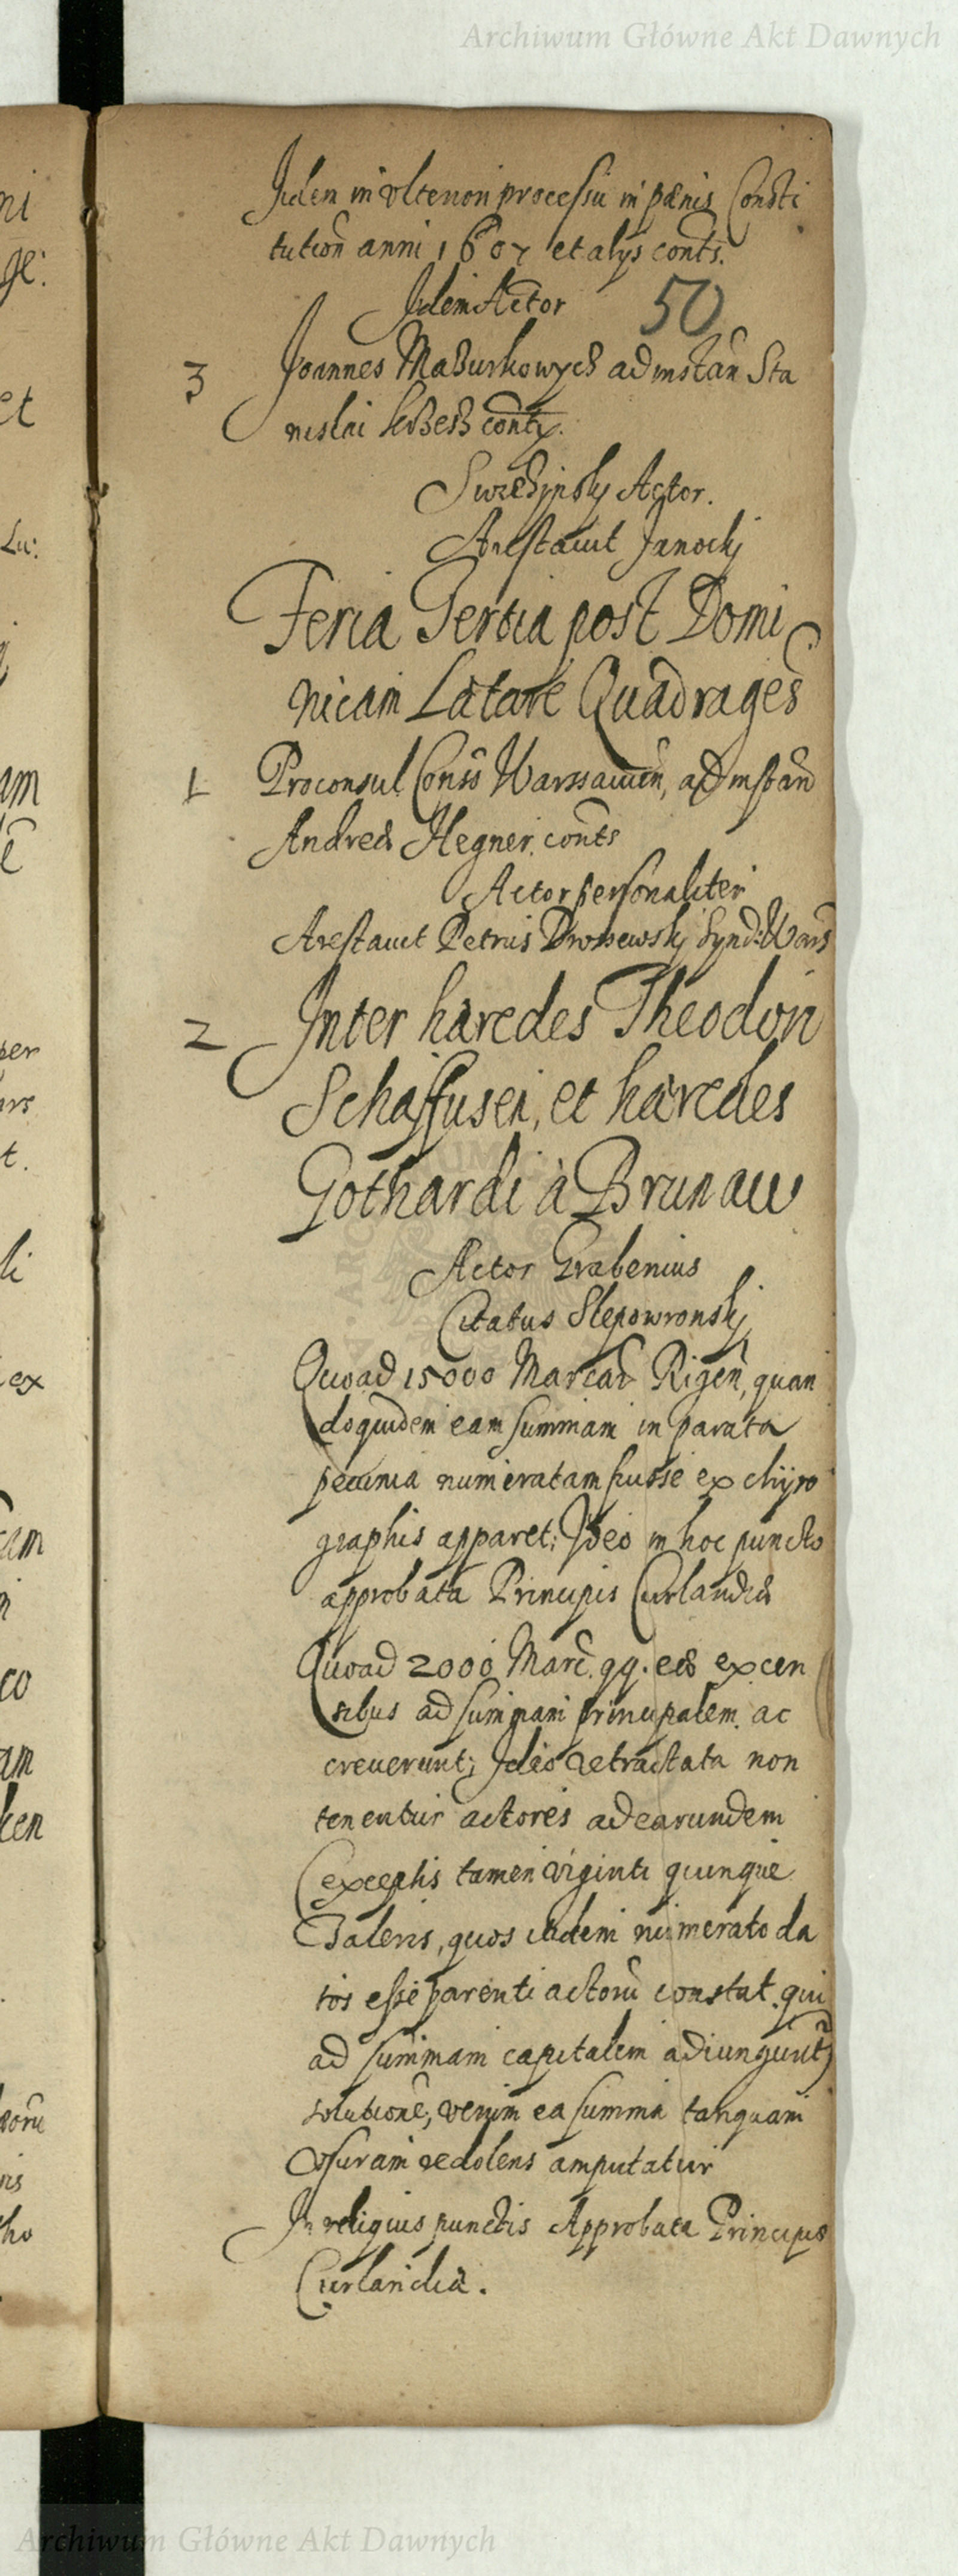 Archiwum Główne Akt Dawnych
Idem in ulteriori processu in pænis Consti
tution anni 1607 et alys conts.
Idem Actor
50
3 Joannes Mazurkowycz ad instan Sta
nislai contx.
Actor.
Arestauit Janockj
Feria Tertia post Domi
nicam Lætare Quadrages
1 Proconsul Conss Warssauien, ad instan
Andreæ Hegner conts
Actor personaliter
Arestauit Petrus Drossewskj Synd: Wars
2 Inter hæredes Theodori
Schaffusen, et hæredes
Gothardi à Brunaw
Actor Grabenius
Citatus Slepowronskj
Quoad 15000 Marcar Rigen, quan
doquidem eam summam in parata
pecunia numeratam fuisse ex chijro
graphis apparet; Ideo in hoc puncto
approbata Principis Curlandiæ
Quoad 2000 Marc. qq. eæ ex cen
sibus ad summam principalem ac
creuerunt; Ideo retractata non
tenentur actores ad earundem
exceptis tamen viginti quinque
Taleris, quos ibidem numerato da
tos esse parenti actorū constat. qui
ad summam capitalem adiungunt
solutione, verum ea summa tanquam
vsuram redolens amputatur
In reliquis punctis Approbata Principis
Curlandiæ.
Archiwum Główne Akt Dawnych